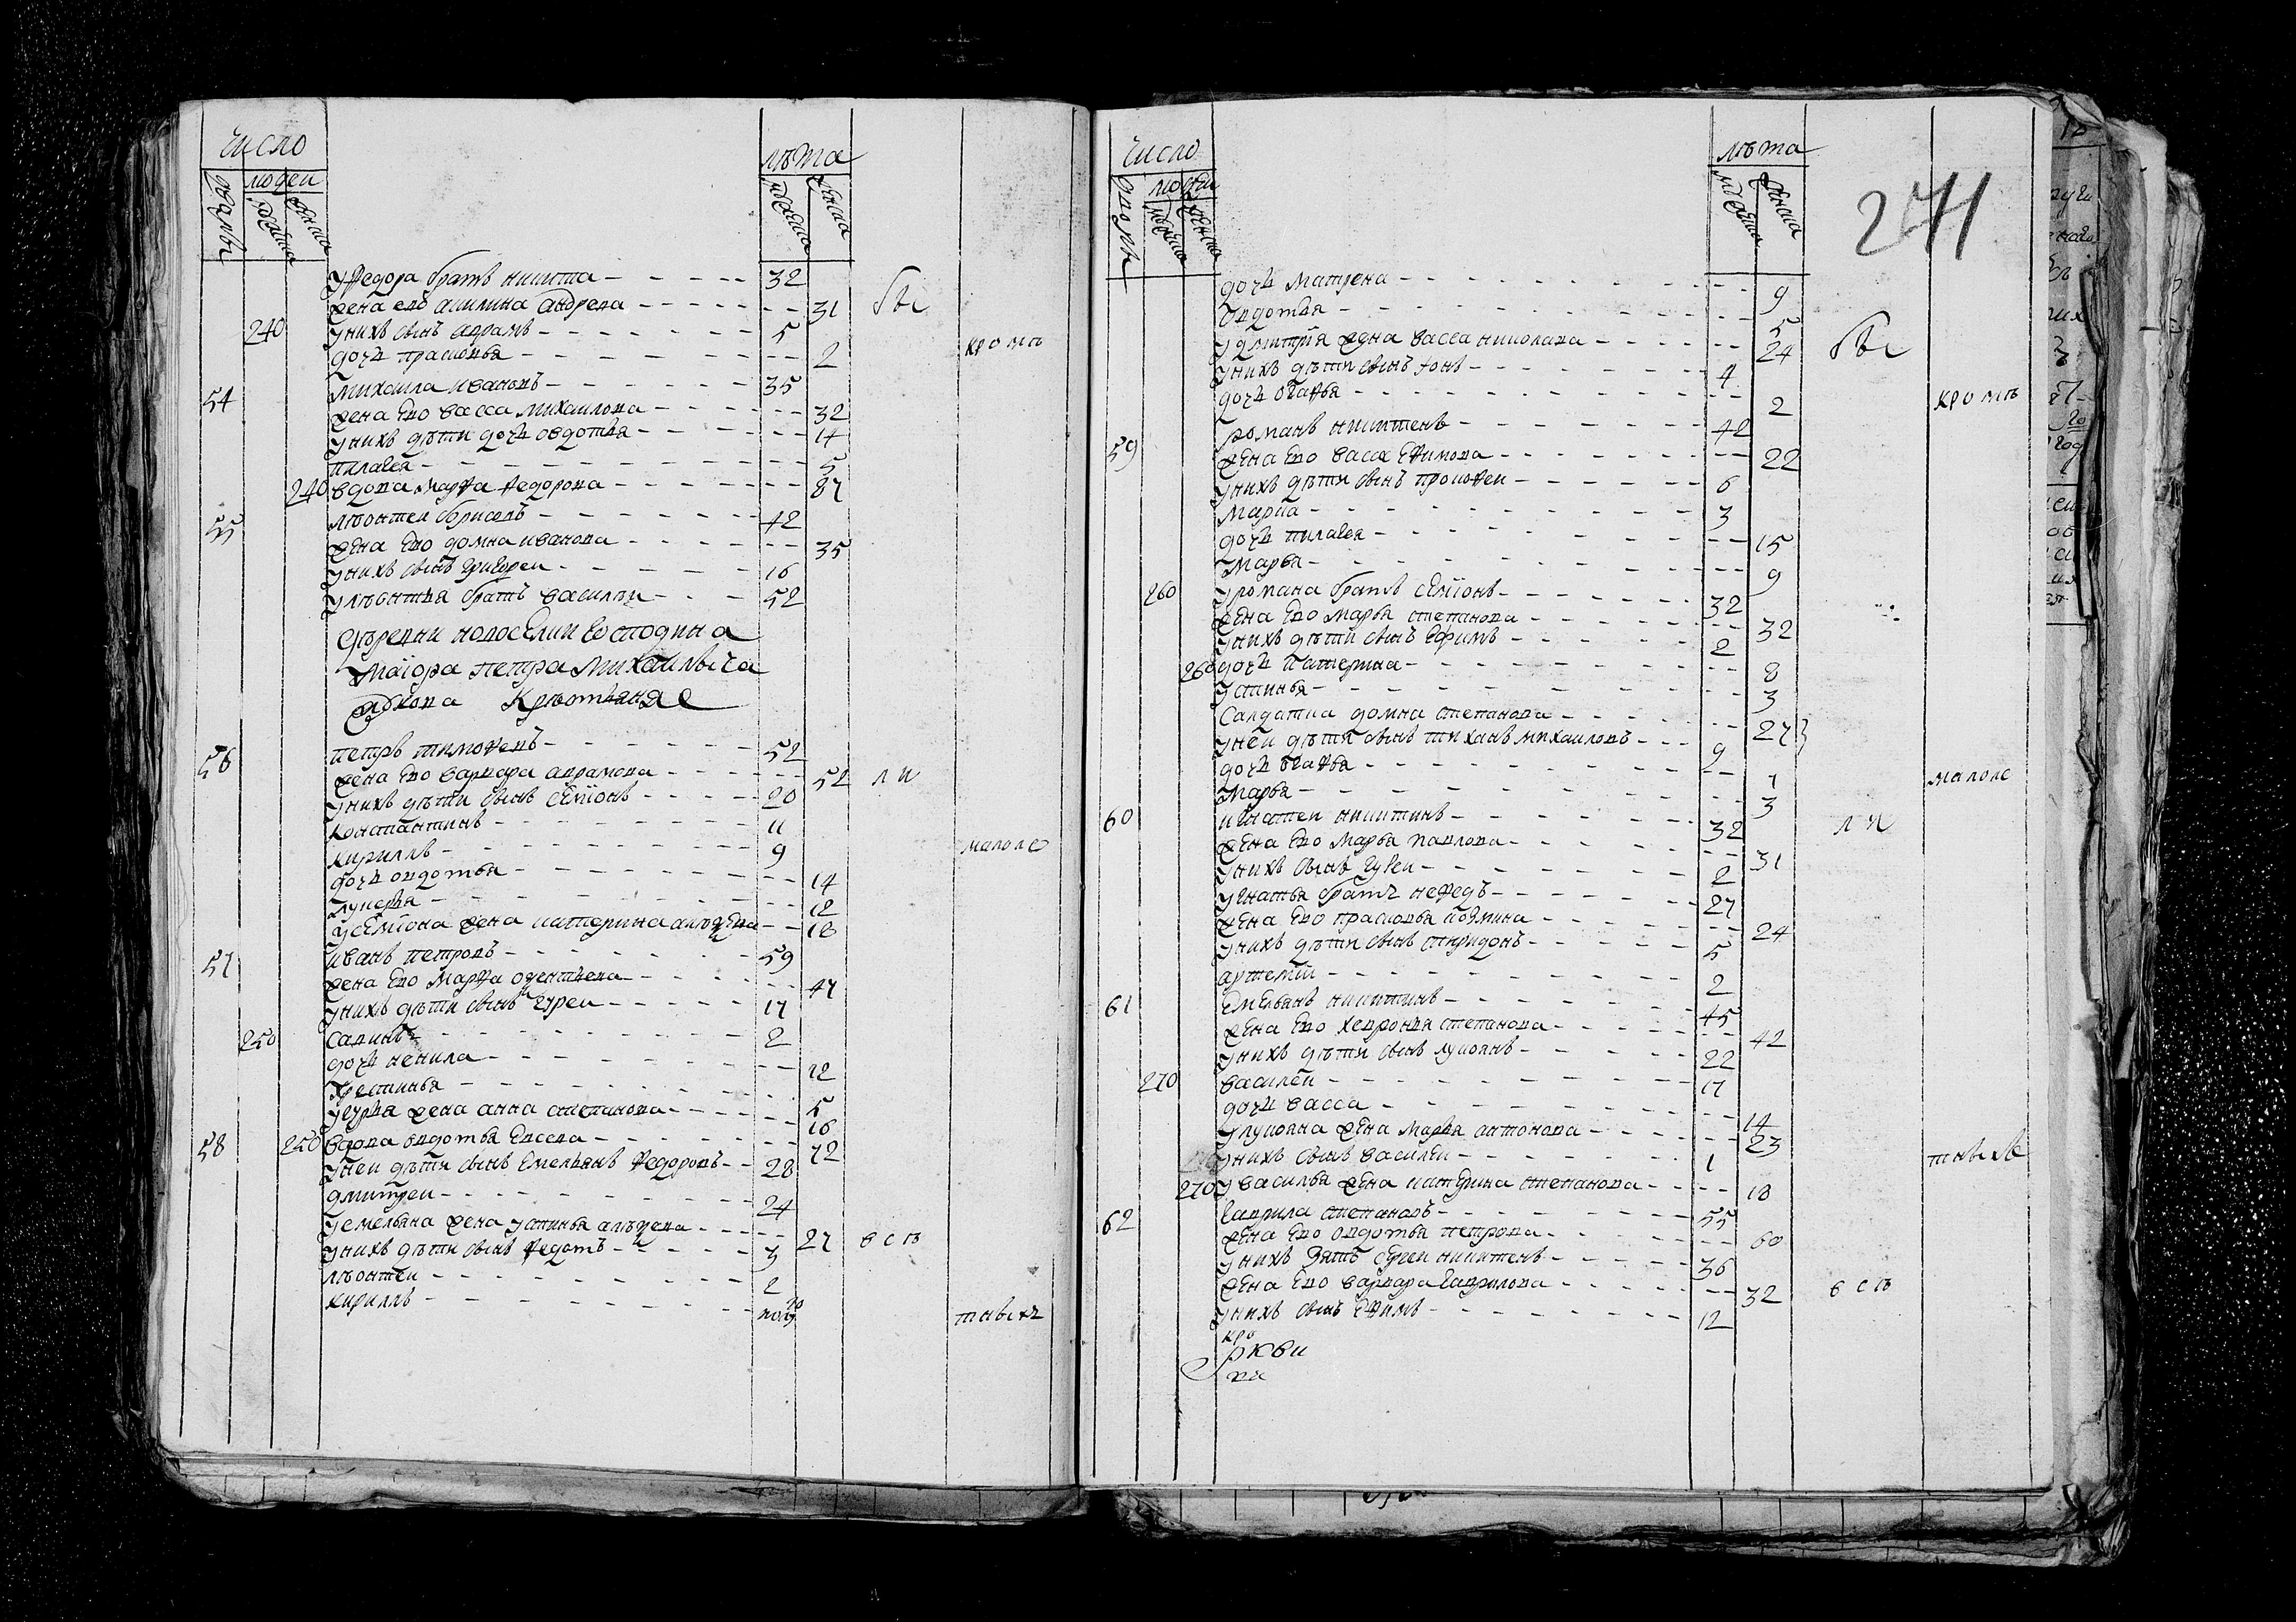 число
людеи
лѣта
дворовъ
мужеска
женска
мужеска
женска
у Федора братъ никита 32
жена ево акилина андреева 31 бы
240 у нихъ сынъ аврамъ 5
дочь прасковья 2 кромѣ
54 михаила ивановъ 35
жена ево васса михаилова 32
у нихъ дѣти дочь овдотья 14
пилагея 5
240 вдова марфа федорова 87
55 лѣонтеи борисовъ 42
жена ево домна иванова 35
у нихъ сынъ григореи 16
у лѣонтья братъ василеи 52
дѣревни новоселки господина
маіора петра михаилвича
крѣстьяня
56 петръ тимофевъ 52
жена ево варвара аврамова 52 ли
у нихъ дѣти сынъ семіонъ 20
констянтинъ 11
кириллъ 9 малоле
дочь овдотья 14
лукерья 12
у семіона жена катерина алѣѯева 18
57 иванъ петровъ 59
жена ево марфа 47
у нихъ дѣти сынъ гуреи 17
250 савинъ 2
дочь ненила 12
крестинья 5
у гурья жена анна степанова 16
58 250 вдова овдотья евсева 72
у неи дѣти сынъ емельянъ федоровъ 28
дмитреи 24
у емельяна жена устинья алѣѯева 27 всѣ
у нихъ дѣти сынъ федотъ 3
лѣонтеи 2
кириллъ полу тныхъ
число
людеи
лѣта
дворовъ
мужеска
женска
мужеска
женска
271
дочь матрена 9
овдотья 5
у дмитрія жена васса николава 24 бы
у нихъ дѣти сынъ фонъ 4
дочь огафья 2 кромѣ
59 романъ никитенъ 42
жена ево васса ефимова 22
у нихъ дѣти сынъ прокофеи 6
марка 3
дочь пилагея 15
марья 9
260 у романа братъ семіонъ 32
жена ево марья степанова 32
у нихъ дѣти сынъ ефимъ 2
260 дочь катерина 8
устинья 3
салдатка домна степанова 27
у неи дѣти сынъ тиханъ михаиловъ 9
дочь огафья 7
марья 3 малоле
60 игнатеи никитинъ 32 ли
жена ево марья павлова 31
у нихъ сынъ гуреи 2
у игнатья братъ нефедъ 27
жена ево прасковья козмина 24
у нихъ дѣти сынъ спиридонъ 5
артемій 2
61 емельянъ никитинъ 45
жена ево хевронья степанова 42
у нихъ дѣти сынъ лукіянъ 22
270 василеи 17
дочь васса 14
у лукояна жена марья антонова 23
у нихъ сынъ василеи 1 тныхъ
270 у василья жена катерина степанова 18
62 гаврила степановъ 55
жена ево овдотья петрова 60
у нихъ зять сергеи никитенъ 36
жена ево варвара гаврилова 32 всѣ
у нихъ сынъ ефимъ 12
кро
ркви